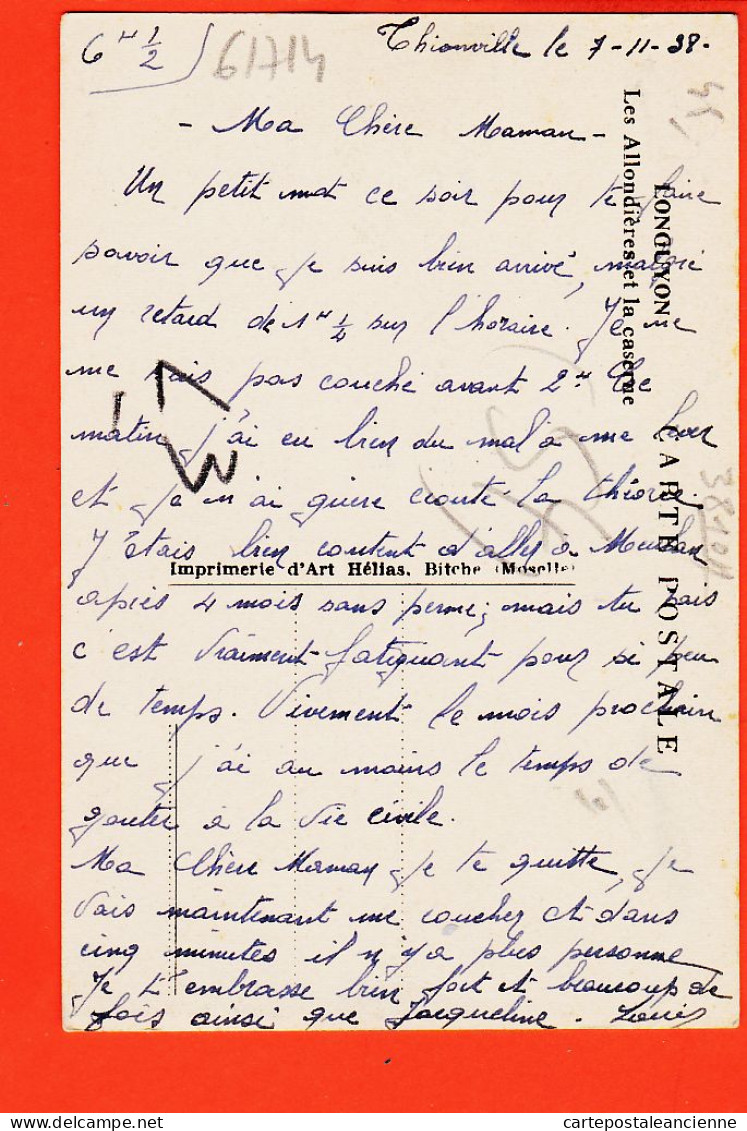 6 H ½
61714
Thionville le 7-11-38-
- Ma Chère Maman -
Un petit mot ce soir pour te faire
savoir que je suis bien arrivé, malgré
un retard de 1 H ¼ sur l'horaire. Je ne
me suis pas couché avant 2 H le
matin, j'ai eu bien du mal à me lever
et je n'ai guère écouté la théorie.
J'étais bien content d'aller à Meulan
après 4 mois sans perme; mais tu sais
c'est vraiment fatiguant pour si peu
de temps. Vivement le mois prochain
que j'ai au moins le temps de
gouter à la vie civile.
Ma Chère Maman je te quitte, je
vais maintenant me coucher et dans
cinq minutes il n'y a plus personne
Je t'embrasse bien fort et beaucoup de
fois ainsi que Jacqueline. Louis
LONGUYON
Les Allondières et la caserne
CARTE POSTALE
Imprimerie d'Art Hélias, Bitche (Moselle)
delcampe.net
cartepostaleancienne